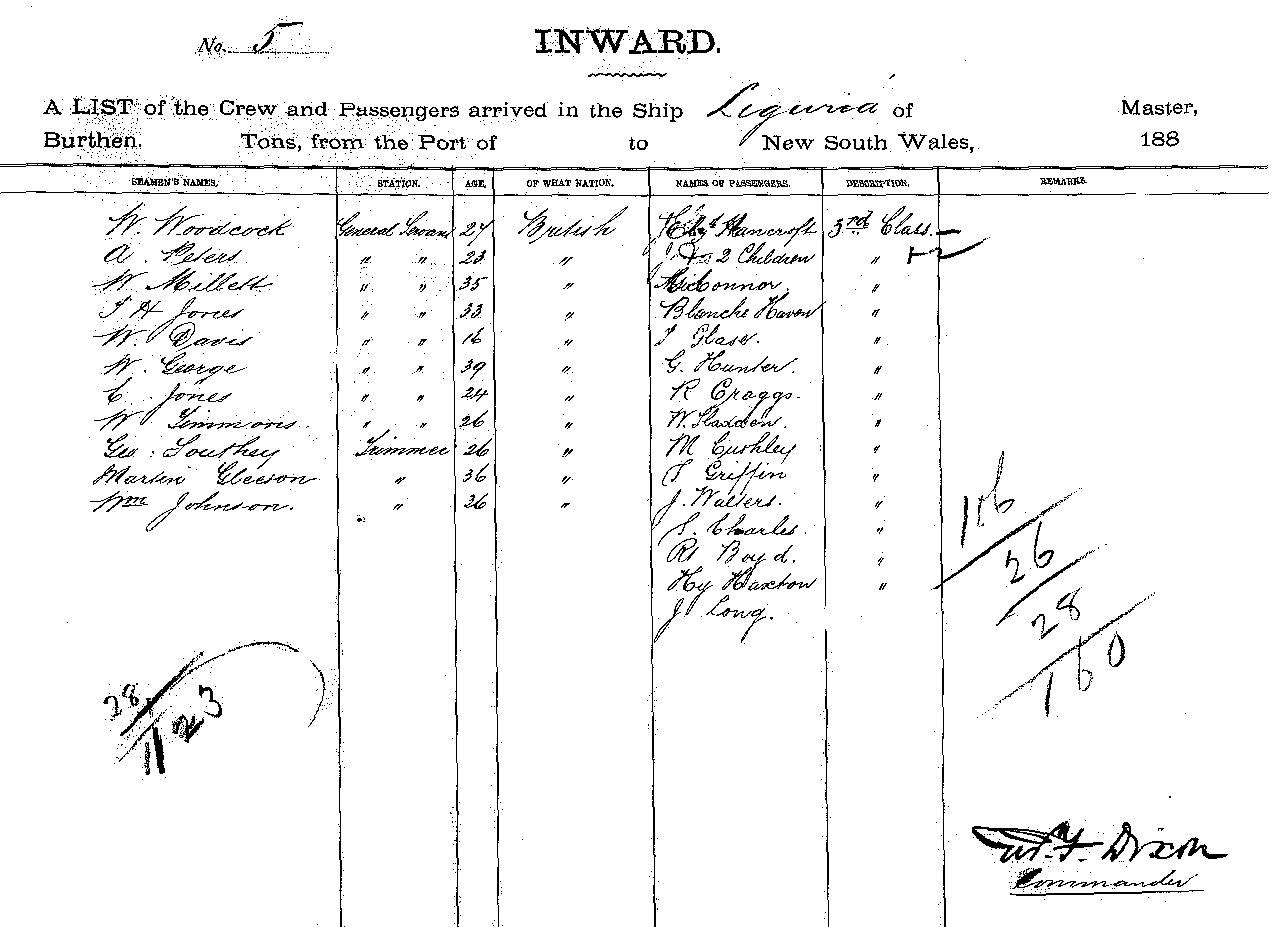 No. 5
INWARD.
A LIST of the Crew and Passengers arrived in the Ship Liguria of Master,
Burthen. Tons, from the Port of to New South Wales, 188
SEAMEN'S NAMES. STATION. AGE. OF WHAT NATION. NAMES OF PASSENGERS. DESCRIPTION. REMARKS.
W. Woodcock General Servant 27 British Hancroft 3rd Class
A. Peters " " 23 " 2 Children " + 2
W. Millett " " 35 " McConnor "
T H Jones " " 33 " Blanche Havon "
W. Davis " " 16 " T Glaser. "
W. George " " 39 " G. Hunter. "
C. Jones " " 24 " R Craggs. "
W Timmons. " " 26 " W. Sladden. "
Geo. Southey Trimmer 26 " M Cushley "
Martin Gleeson " 36 " T Griffin "
Wm Johnson. " 26 " J. Walters. "
S. Charles. "
Rt Boyd. "
Hy Haxton "
J Long.
106
26
28
160
28
1123
W. F. Dixon
Commander